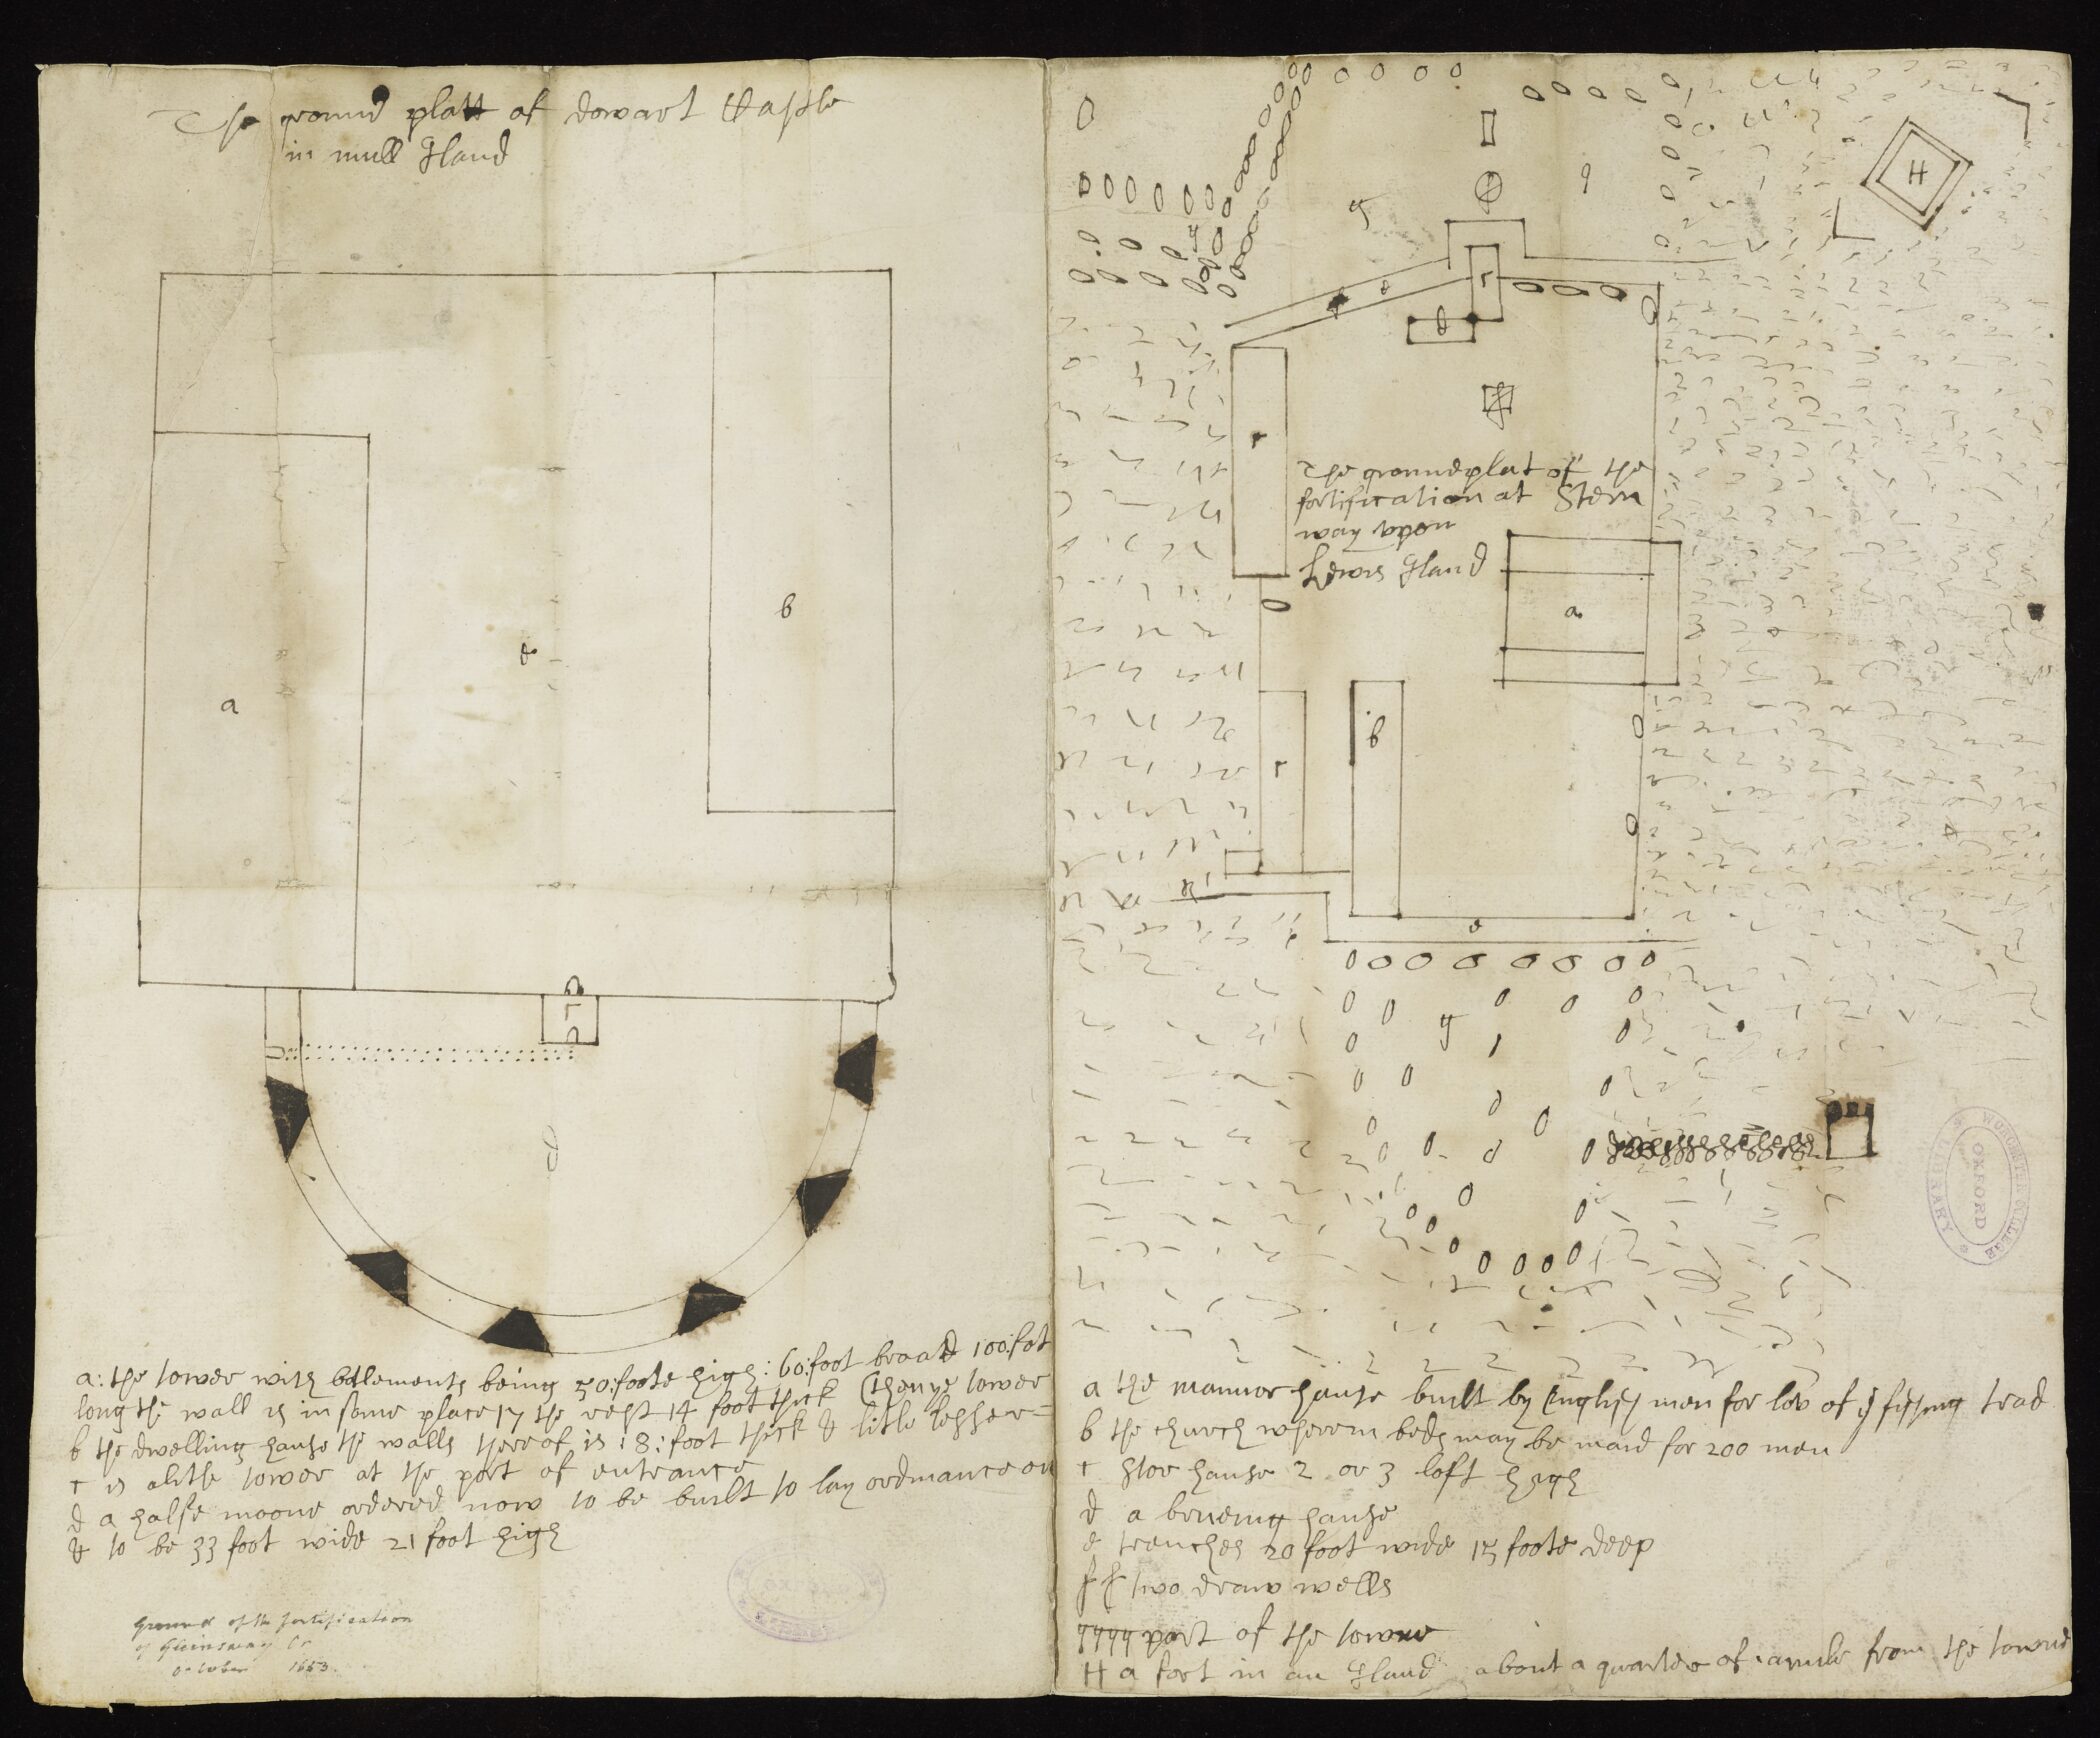 The ground platt of dowart Castle
in mull Iland
a
b
e
c
d
a: the tower with batlements being 50: foote high: 60: foot broad 100: fot
long the wall is in some place 17 the rest 14 foot thick
b the dwelling house the walls thereof is : 8: foot thick & litle lesher=
c is a litle tower at the port of entrance
d a halfe moone ordered now to be built to lay ordinance on
& to be 33 foot wide 21 foot high
Ground of the fortification
of
October 1653.
OXFORD
H
g
g
e
c
d
f
c
The groundplat of the
fortification at Stern
way vpon
Lewis Iland
a
b
c
e
g
WORCESTER COLLEGE
OXFORD
LIBRARY
a the mannor house built by English men for lov of ye fishing trad
b the church wherein beds may be maid for 200 men
c stor house 2 or 3 loft high
d a brueing house
e trenches 20 foot wide 15 foote deep
f f two draw wells
gggg part of the towne
H a fort in an Iland about a quarter of a mile from the towne